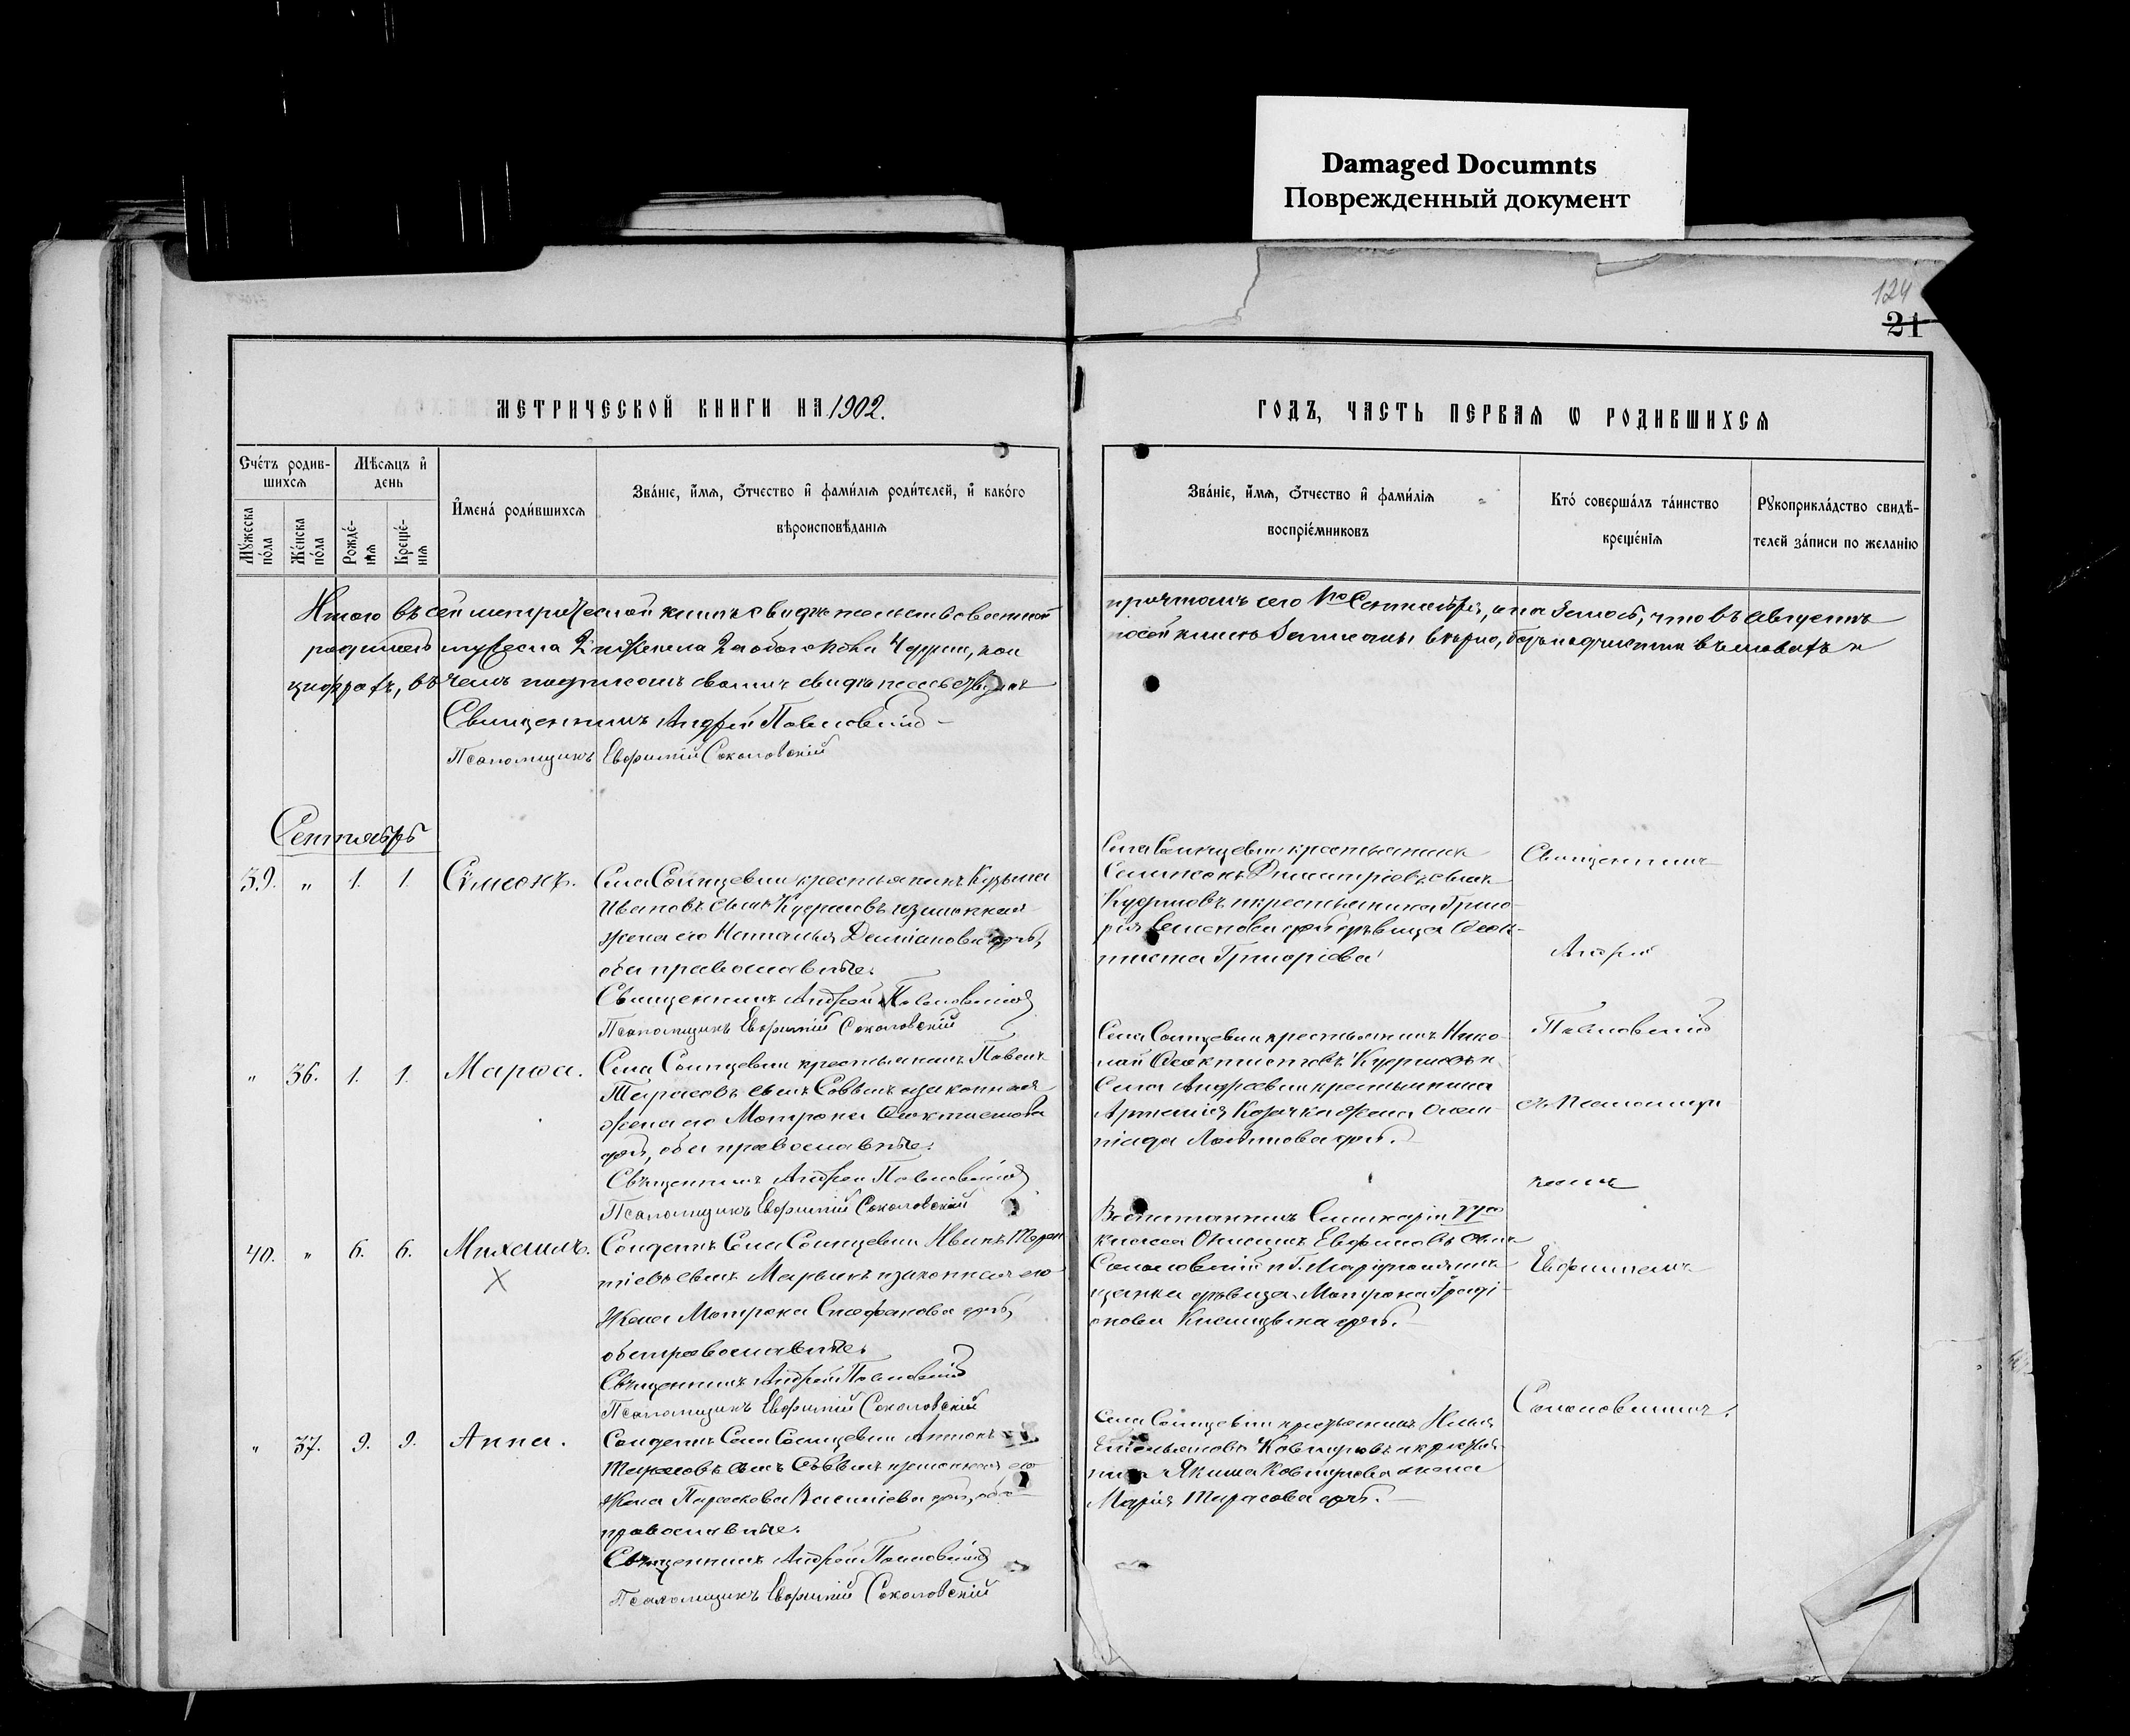 Damaged Documnts
Поврежденный документ
124
21
МЕТРИЧЕСКОЙ КНИГИ НА 1902.
ГОДЪ, ЧАСТЬ ПЕРВАѦ Ѡ РОДИВШИХСѦ
Сче́тъ родив-
шихсѧ
Мѣсѧцъ и҆
день
Мꙋ́жеска по́ла
Же́нска по́ла
Рожде́-
нїѧ
Креще́-
нїѧ
И҆мена̀ роди́вшихсѧ
Зва́нїе, и҆́мѧ, ѻ҆́тчество и҆ фами́лїѧ роди́телей, и҆ како́го
вѣроисповѣ́данїѧ
Зва́нїе, и҆́мѧ, ѻ҆́тчество и҆ фами́лїѧ
воспрїе́мниковъ
Кто̀ соверша́лъ та́инство
креще́нїѧ
Рꙋкоприкла́дство свидѣ́-
телей за́писи по жела́нїю
Итого въ сей метрической книгѣ
родилось мужеска 2 и женска 2 а обоего пола 4 души, кои
цифрахъ, въ чемъ подписомъ своимъ свидѣтельствуемъ
Священникъ Андрей Павловскій
Псаломщикъ Евфимій Соколовскій
прочтомъ сего 1го Сентября, оказалось, что въ Августѣ
по сей книгѣ записаны вѣрно, безъ подчистки въ словахъ и
Сентябрь
39. " 1. 1. Сѵмеонъ.
Села Солтцевки крестьянинъ Кузьма
Ивановъ сынъ Кудриновъ и законная
жена его Наталья Даміанова дочь,
оба православные.
Священникъ Андрей Павловскій
Псаломщикъ Евфимій Соколовскій
Села Солтцевки крестьянинъ
Симеонъ Димитріевъ сынъ
Кудриновъ и крестьянина Григо-
рія дѣвица Ѳеок-
тиста Григоріева
Священникъ
Андрей
Павловскій
съ Псаломщи
комъ
Евфиміемъ
Соколовскимъ.
" 36. 1. 1. Марѳа.
Села Солтцевки крестьянинъ Павелъ
Тарасовъ сынъ и законная
жена его Матрона Ѳеоктистова
дочь, оба православные.
Священникъ Андрей Павловскій
Псаломщикъ Евфимій Соколовскій
Села Солтцевки крестьянинъ Нико-
лай Ѳеоктистовъ Кудриновъ и
Села Андреевки крестьянина
Артемія Козачка жена Олим-
піада дочь.
40. " 6. 6. Михаилъ.
X
Солдатъ Села Солтцевки Терен
тіевъ сынъ и законная его
Жена Матрона Стефанова дочь,
оба православные.
Священникъ Андрей Павловскій
Псаломщикъ Евфимій Соколовскій
Воспитанникъ Семинаріи
класса Евфиміевъ сынъ
Соколовскій и Г. Маріуполя мѣ-
щанка дѣвица Матрона
дочь.
" 37. 9. 9. Анна.
Солдатъ Села Солтцевки Антонъ
Тарасовъ сынъ и законная его
Жена Параскева Василіева дочь, оба
православные.
Священникъ Андрей Павловскій
Псаломщикъ Евфимій Соколовскій
Села Солтцевки крестьянинъ Илья
Емельяновъ и крестья-
нина Якима жена
Марія Тарасова дочь.